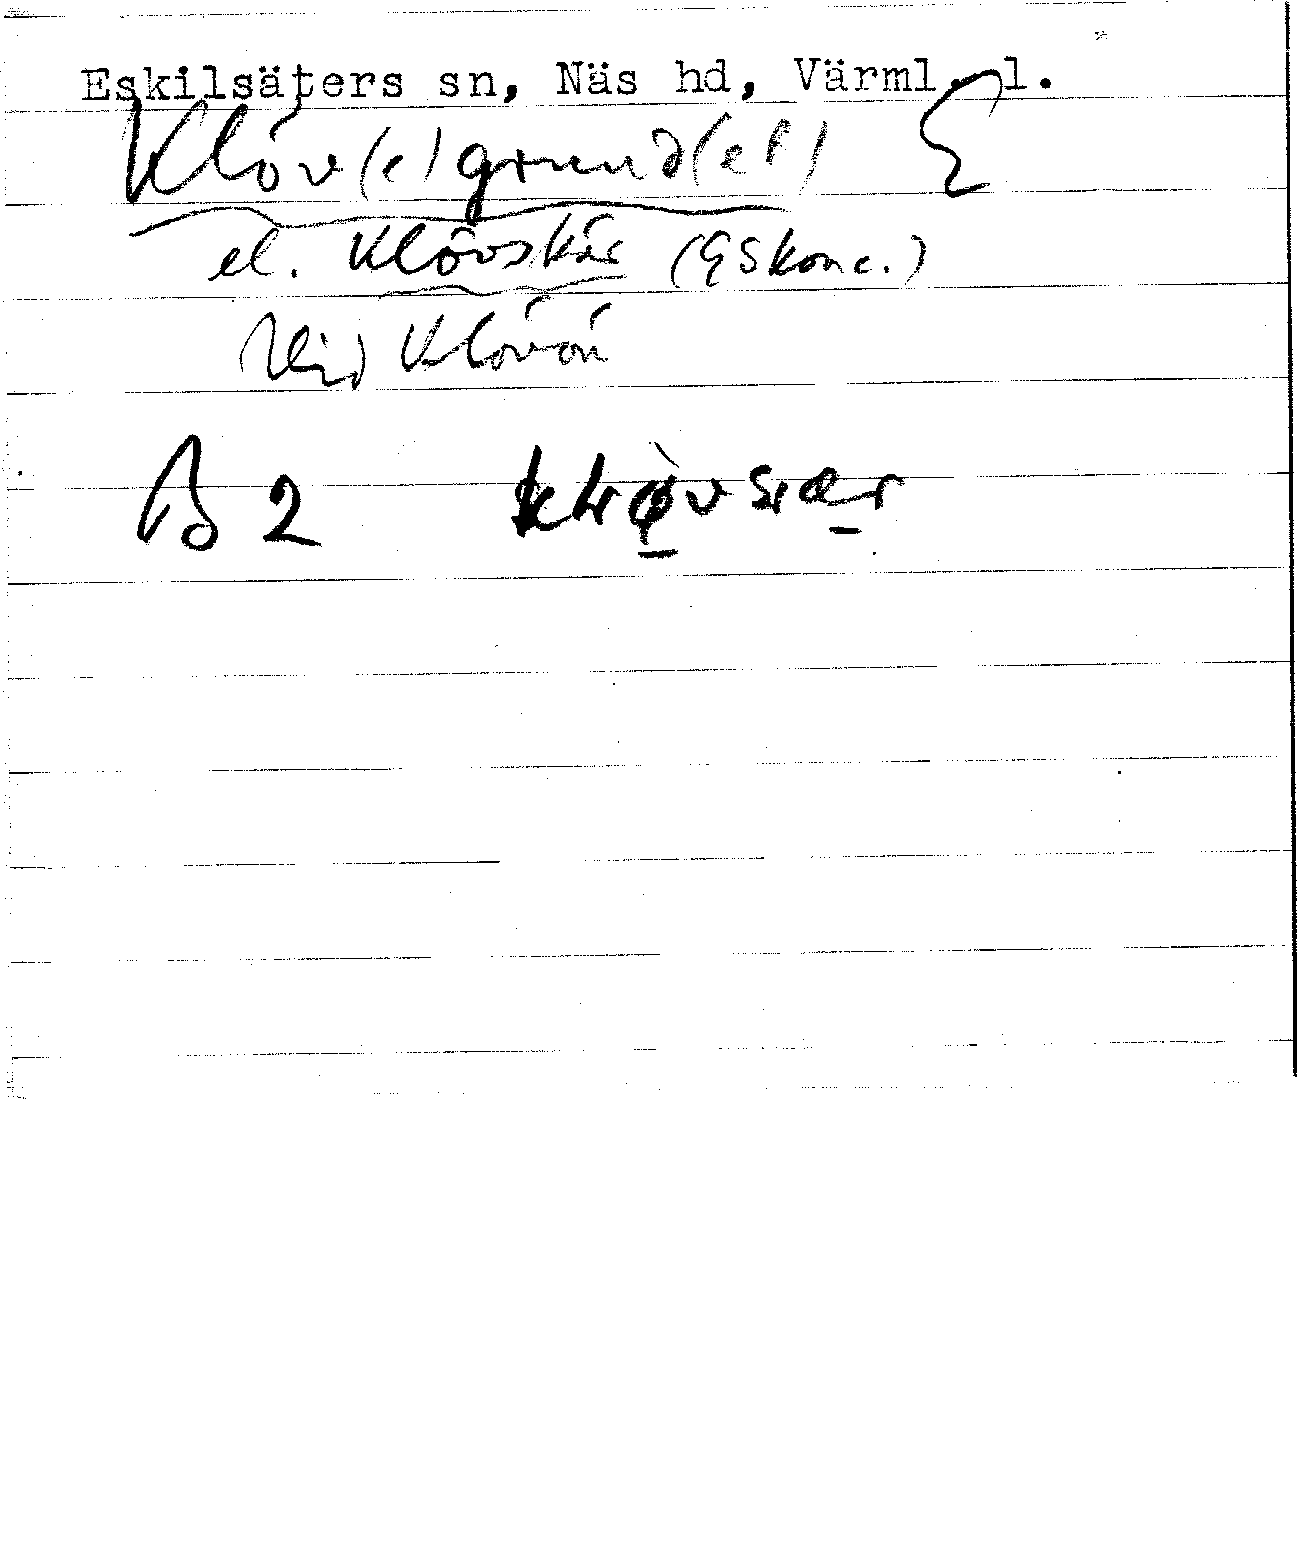 Eskilsäters sn, Näs hd, Värml. l.
Klöv(e)grund(et)
el. Klövskär (GSkonc.)
Vid Klövön
B 2